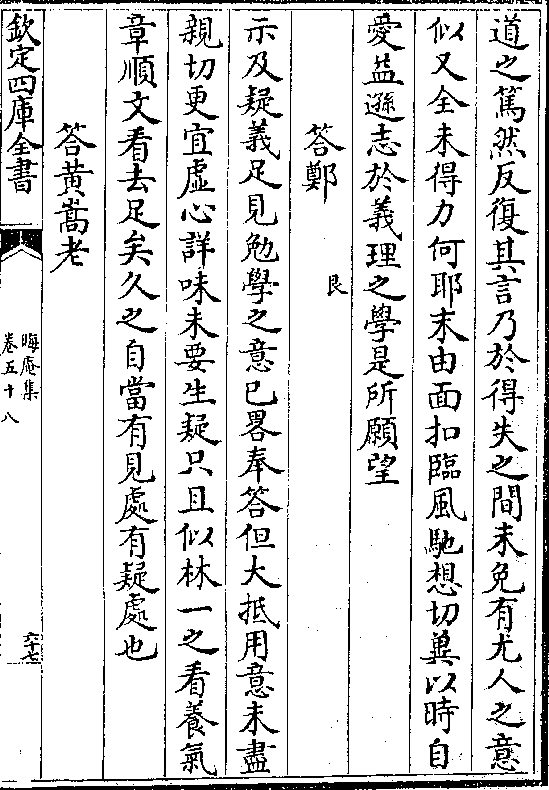 道之篤然反復其言乃於得失之間未免有尤人之意
似又全未得力何耶末由面扣臨風馳想切兾以時自
愛益遜志於義理之學是所願望
答鄭艮
示及疑義足見勉學之意已畧奉答但大抵用意未盡
親切更宜虚心詳味未要生疑只且似林一之看養氣
章順文看去足矣久之自當有見處有疑處也
答黃嵩老
欽定四庫全書
晦庵集
卷五十八
六十七